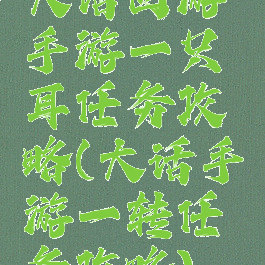 大话西游
手游一只
耳任务攻
略(大话手
游一转任
务攻略)